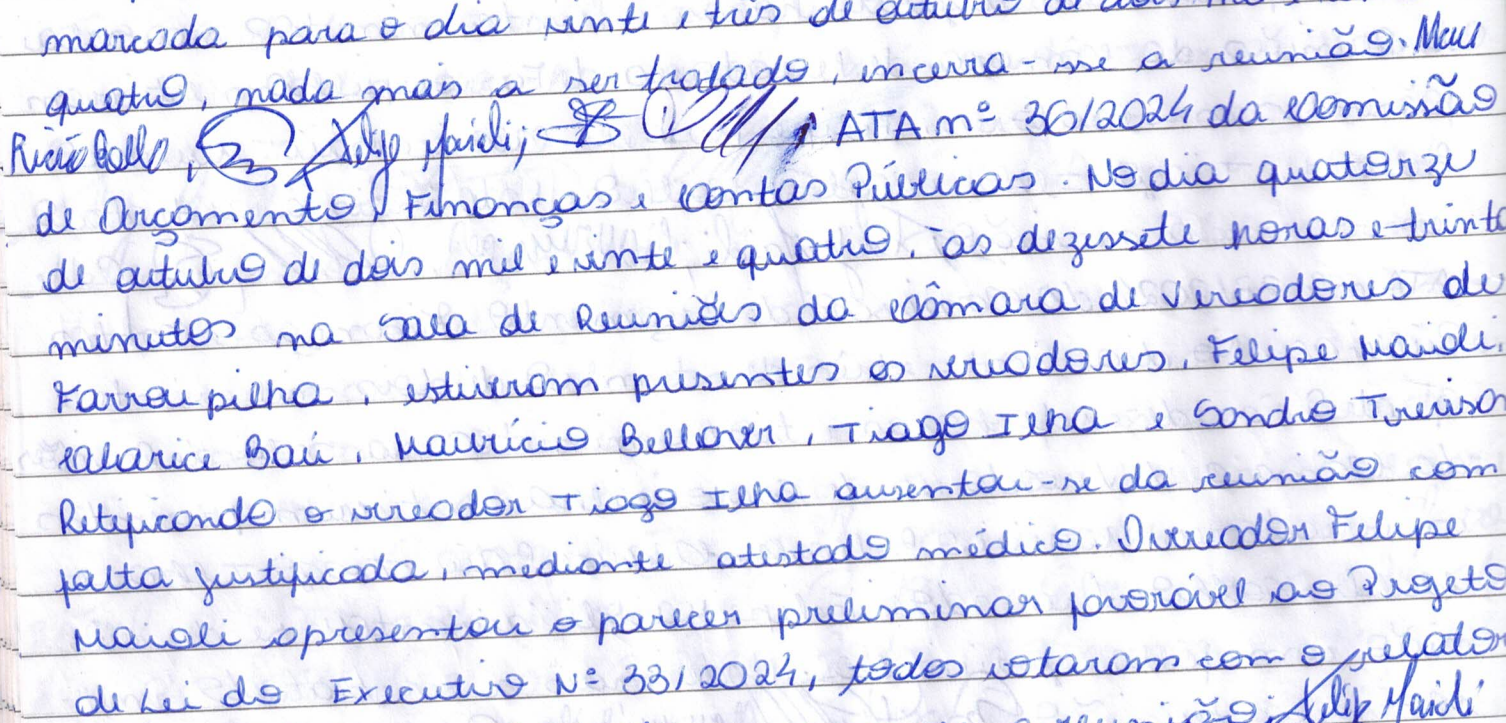 marcada para o dia vinte e três de outubro de dois mil e
quatro, nada mais a ser tratado, incerra-se a reunião.
Felip Maioli; ATA nº 36/2024 da Comissão
de Orçamento, Finanças e Contas Públicas. No dia quatorze
de outubro de dois mil e vinte e quatro, às dezessete horas e trinta
minutos na Sala de Reuniões da Câmara de Vereadores de
Farroupilha, estiveram presentes os vereadores, Felipe Maioli,
Calarice Baú, Maurício Bellaver, Tiago Ilha e Sandro Trevisan
Retificando o vereador Tiago Ilha ausentou-se da reunião com
falta justificada, mediante atestado médico. O vereador Felipe
Maioli apresentou o parecer preliminar favorável ao Projeto
de Lei do Executivo Nº 33/2024, todos votaram com o relator
reunião; Felip Maioli